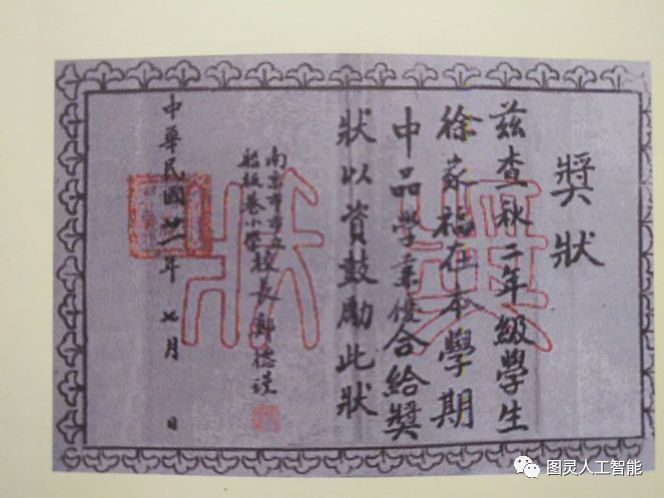 獎狀
茲查秋二年級學生
徐家福在本學期
中品學業優合給獎
狀以資鼓勵此狀
南京市市立
船板巷小學
校長 德
中華民國 一年 七月 日
獎狀
图灵人工智能